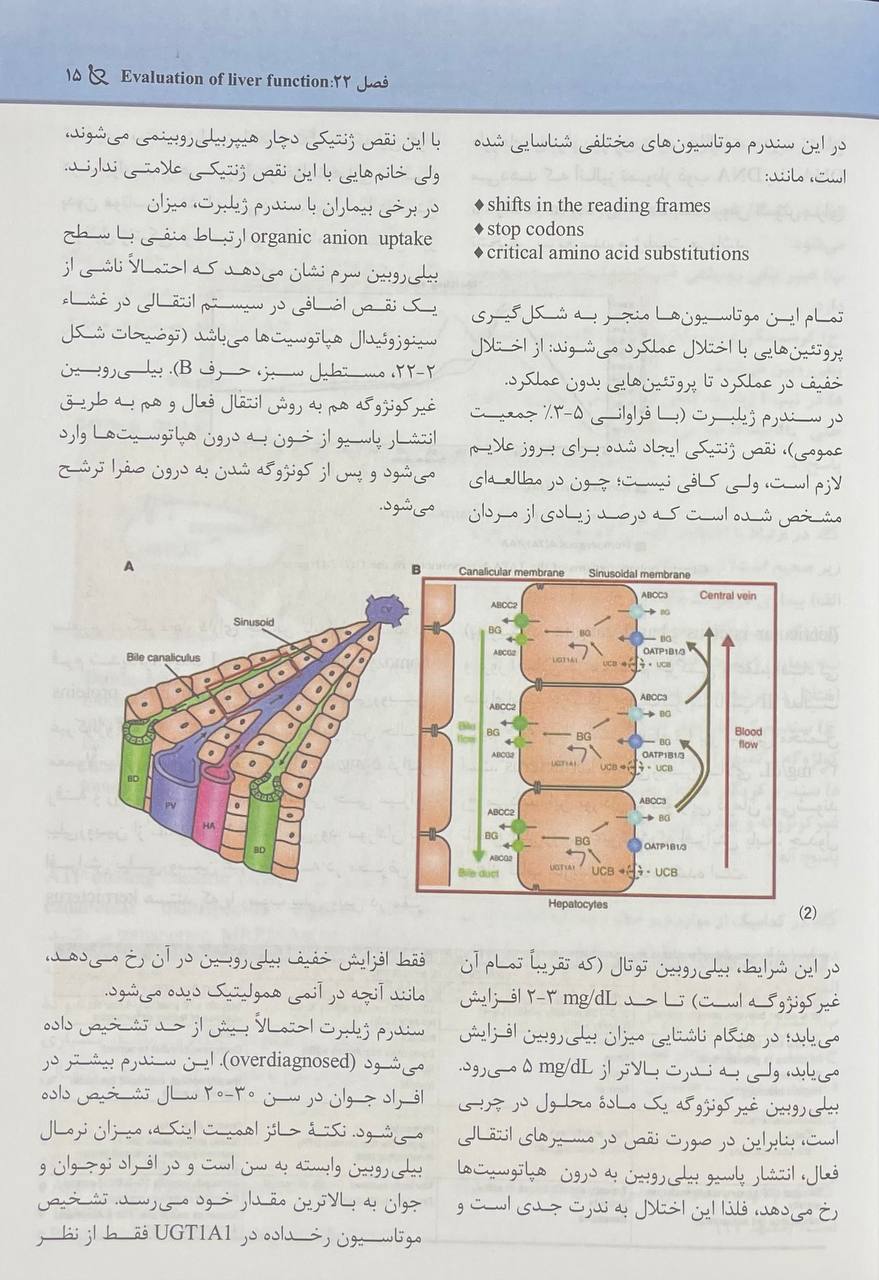 فصل ۲۲:Evaluation of liver function ۱۵
در این سندرم موتاسیون‌های مختلفی شناسایی شده
است، مانند:
♦shifts in the reading frames
♦stop codons
♦critical amino acid substitutions
تمام این موتاسیون‌ها منجر به شکل‌گیری
پروتئین‌هایی با اختلال عملکرد می‌شوند: از اختلال
خفیف در عملکرد تا پروتئین‌هایی بدون عملکرد.
در سندرم ژیلبرت (با فراوانی ۵-۳٪ جمعیت
عمومی)، نقص ژنتیکی ایجاد شده برای بروز علایم
لازم است، ولی کافی نیست؛ چون در مطالعه‌ای
مشخص شده است که درصد زیادی از مردان
با این نقص ژنتیکی دچار هیپربیلی‌روبینمی می‌شوند،
ولی خانم‌هایی با این نقص ژنتیکی علامتی ندارند.
در برخی بیماران با سندرم ژیلبرت، میزان
organic anion uptake ارتباط منفی با سطح
بیلی‌روبین سرم نشان می‌دهد که احتمالاً ناشی از
یک نقص اضافی در سیستم انتقالی در غشاء
سینوزوئیدال هپاتوسیت‌ها می‌باشد (توضیحات شکل
۲-۲۲، مستطیل سبز، حرف B). بیلی‌روبین
غیرکونژوگه هم به روش انتقال فعال و هم به طریق
انتشار پاسیو از خون به درون هپاتوسیت‌ها وارد
می‌شود و پس از کونژوگه شدن به درون صفرا ترشح
می‌شود.
A
CV
Sinusoid
Bile canaliculus
BD
PV
HA
BD
B
Canalicular membrane
Sinusoidal membrane
Central vein
ABCC2
BG
ABCG2
BG
UGT1A1
UCB
ABCC3
BG
BG
OATP1B1/3
UCB
ABCC2
BG
ABCG2
BG
UGT1A1
UCB
ABCC3
BG
BG
OATP1B1/3
UCB
ABCC2
BG
ABCG2
BG
UGT1A1
UCB
ABCC3
BG
OATP1B1/3
UCB
Bile
flow
Bile duct
Blood
flow
Hepatocytes
(2)
در این شرایط، بیلی‌روبین توتال (که تقریباً تمام آن
غیرکونژوگه است) تا حد ۳-۲ mg/dL افزایش
می‌یابد؛ در هنگام ناشتایی میزان بیلی‌روبین افزایش
می‌یابد، ولی به ندرت بالاتر از ۵ mg/dL می‌رود.
بیلی‌روبین غیرکونژوگه یک مادهٔ محلول در چربی
است، بنابراین در صورت نقص در مسیرهای انتقالی
فعال، انتشار پاسیو بیلی‌روبین به درون هپاتوسیت‌ها
رخ می‌دهد، فلذا این اختلال به ندرت جدی است و
فقط افزایش خفیف بیلی‌روبین در آن رخ می‌دهد،
مانند آنچه در آنمی همولیتیک دیده می‌شود.
سندرم ژیلبرت احتمالاً بیش از حد تشخیص داده
می‌شود (overdiagnosed). این سندرم بیشتر در
افراد جوان در سن ۳۰-۲۰ سال تشخیص داده
می‌شود. نکتهٔ حائز اهمیت اینکه، میزان نرمال
بیلی‌روبین وابسته به سن است و در افراد نوجوان و
جوان به بالاترین مقدار خود می‌رسد. تشخیص
موتاسیون رخداده در UGT1A1 فقط از نظر